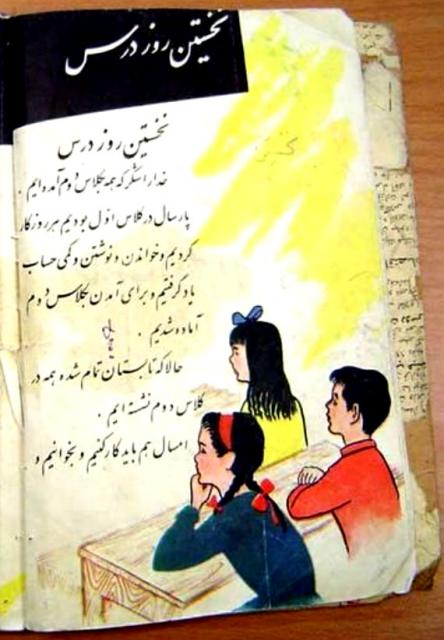 نخستین روز درس
نخستین روز درس
خدا را شکر که همه بکلاس دوم آمده ایم .
پارسال در کلاس اول بودیم هر روز کار
کردیم و خواندن و نوشتن و کمی حساب
یاد گرفتیم و برای آمدن بکلاس دوم
آماده شدیم .
حالا که تابستان تمام شده همه در
کلاس دوم نشسته ایم .
امسال هم باید کار کنیم و بخوانیم و